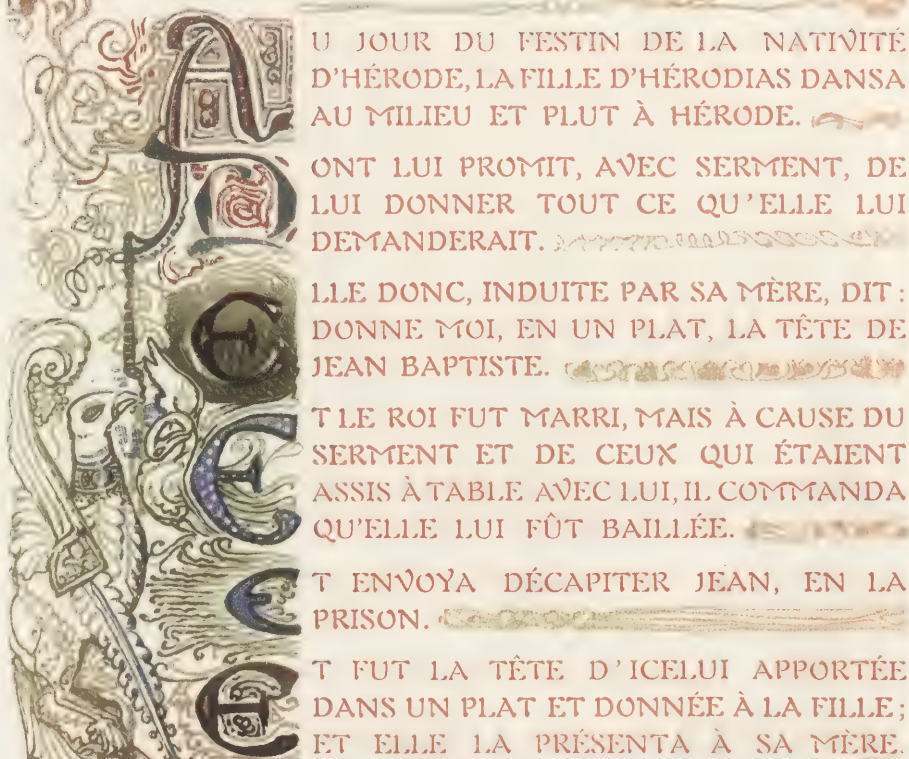 AU JOUR DU FESTIN DE LA NATIVITÉ
D'HÉRODE, LA FILLE D'HÉRODIAS DANSA
AU MILIEU ET PLUT À HÉRODE.
DONT LUI PROMIT, AVEC SERMENT, DE
LUI DONNER TOUT CE QU'ELLE LUI
DEMANDERAIT.
ELLE DONC, INDUITE PAR SA MÈRE, DIT :
DONNE MOI, EN UN PLAT, LA TÊTE DE
JEAN BAPTISTE.
ET LE ROI FUT MARRI, MAIS À CAUSE DU
SERMENT ET DE CEUX QUI ÉTAIENT
ASSIS À TABLE AVEC LUI, IL COMMANDA
QU'ELLE LUI FÛT BAILLÉE.
ET ENVOYA DÉCAPITER JEAN, EN LA
PRISON.
ET FUT LA TÊTE D'ICELUI APPORTÉE
DANS UN PLAT ET DONNÉE À LA FILLE ;
ET ELLE LA PRÉSENTA À SA MÈRE.